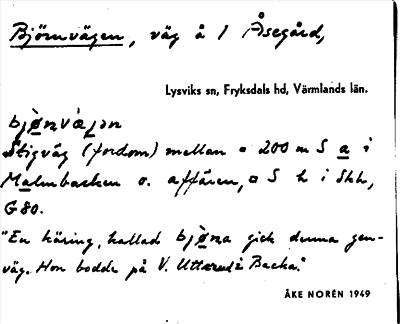 Björnvägen, väg å 1 Åsegård,
Lysviks sn, Fryksdals hd, Värmlands län.
bjø̀ṇvǽgən
Stigväg (fordom) mellan ¤ 200 m S a i
Malmbacken o. affären, ¤ S h i Shh,
G 80.
"En käring, kallad bjø̀ṇa gick denna gen-
väg. Hon bodde på V. Utterud:s Backa."
ÅKE NORÉN 1949